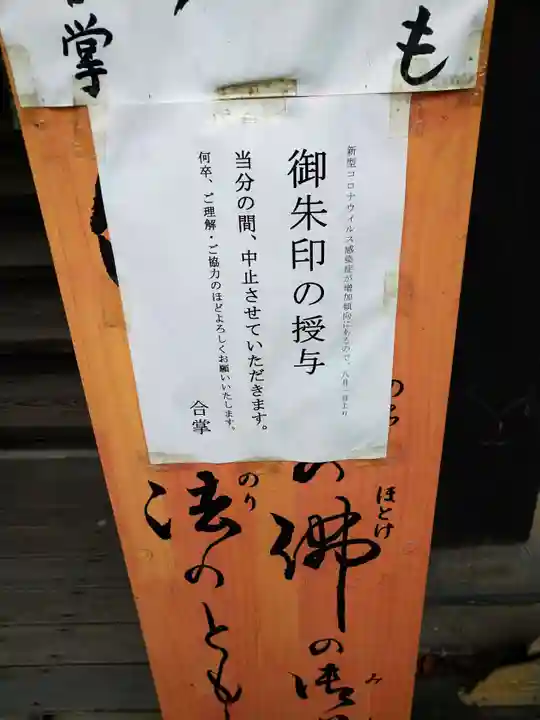 も
掌
新型コロナウィルス感染症が増加傾向にあるので、八月一日より
御朱印の授与
当分の間、中止させていただきます。
何卒、ご理解・ご協力のほどよろしくお願いいたします。
合掌
の佛の
ほとけ
み
法のとも
のり